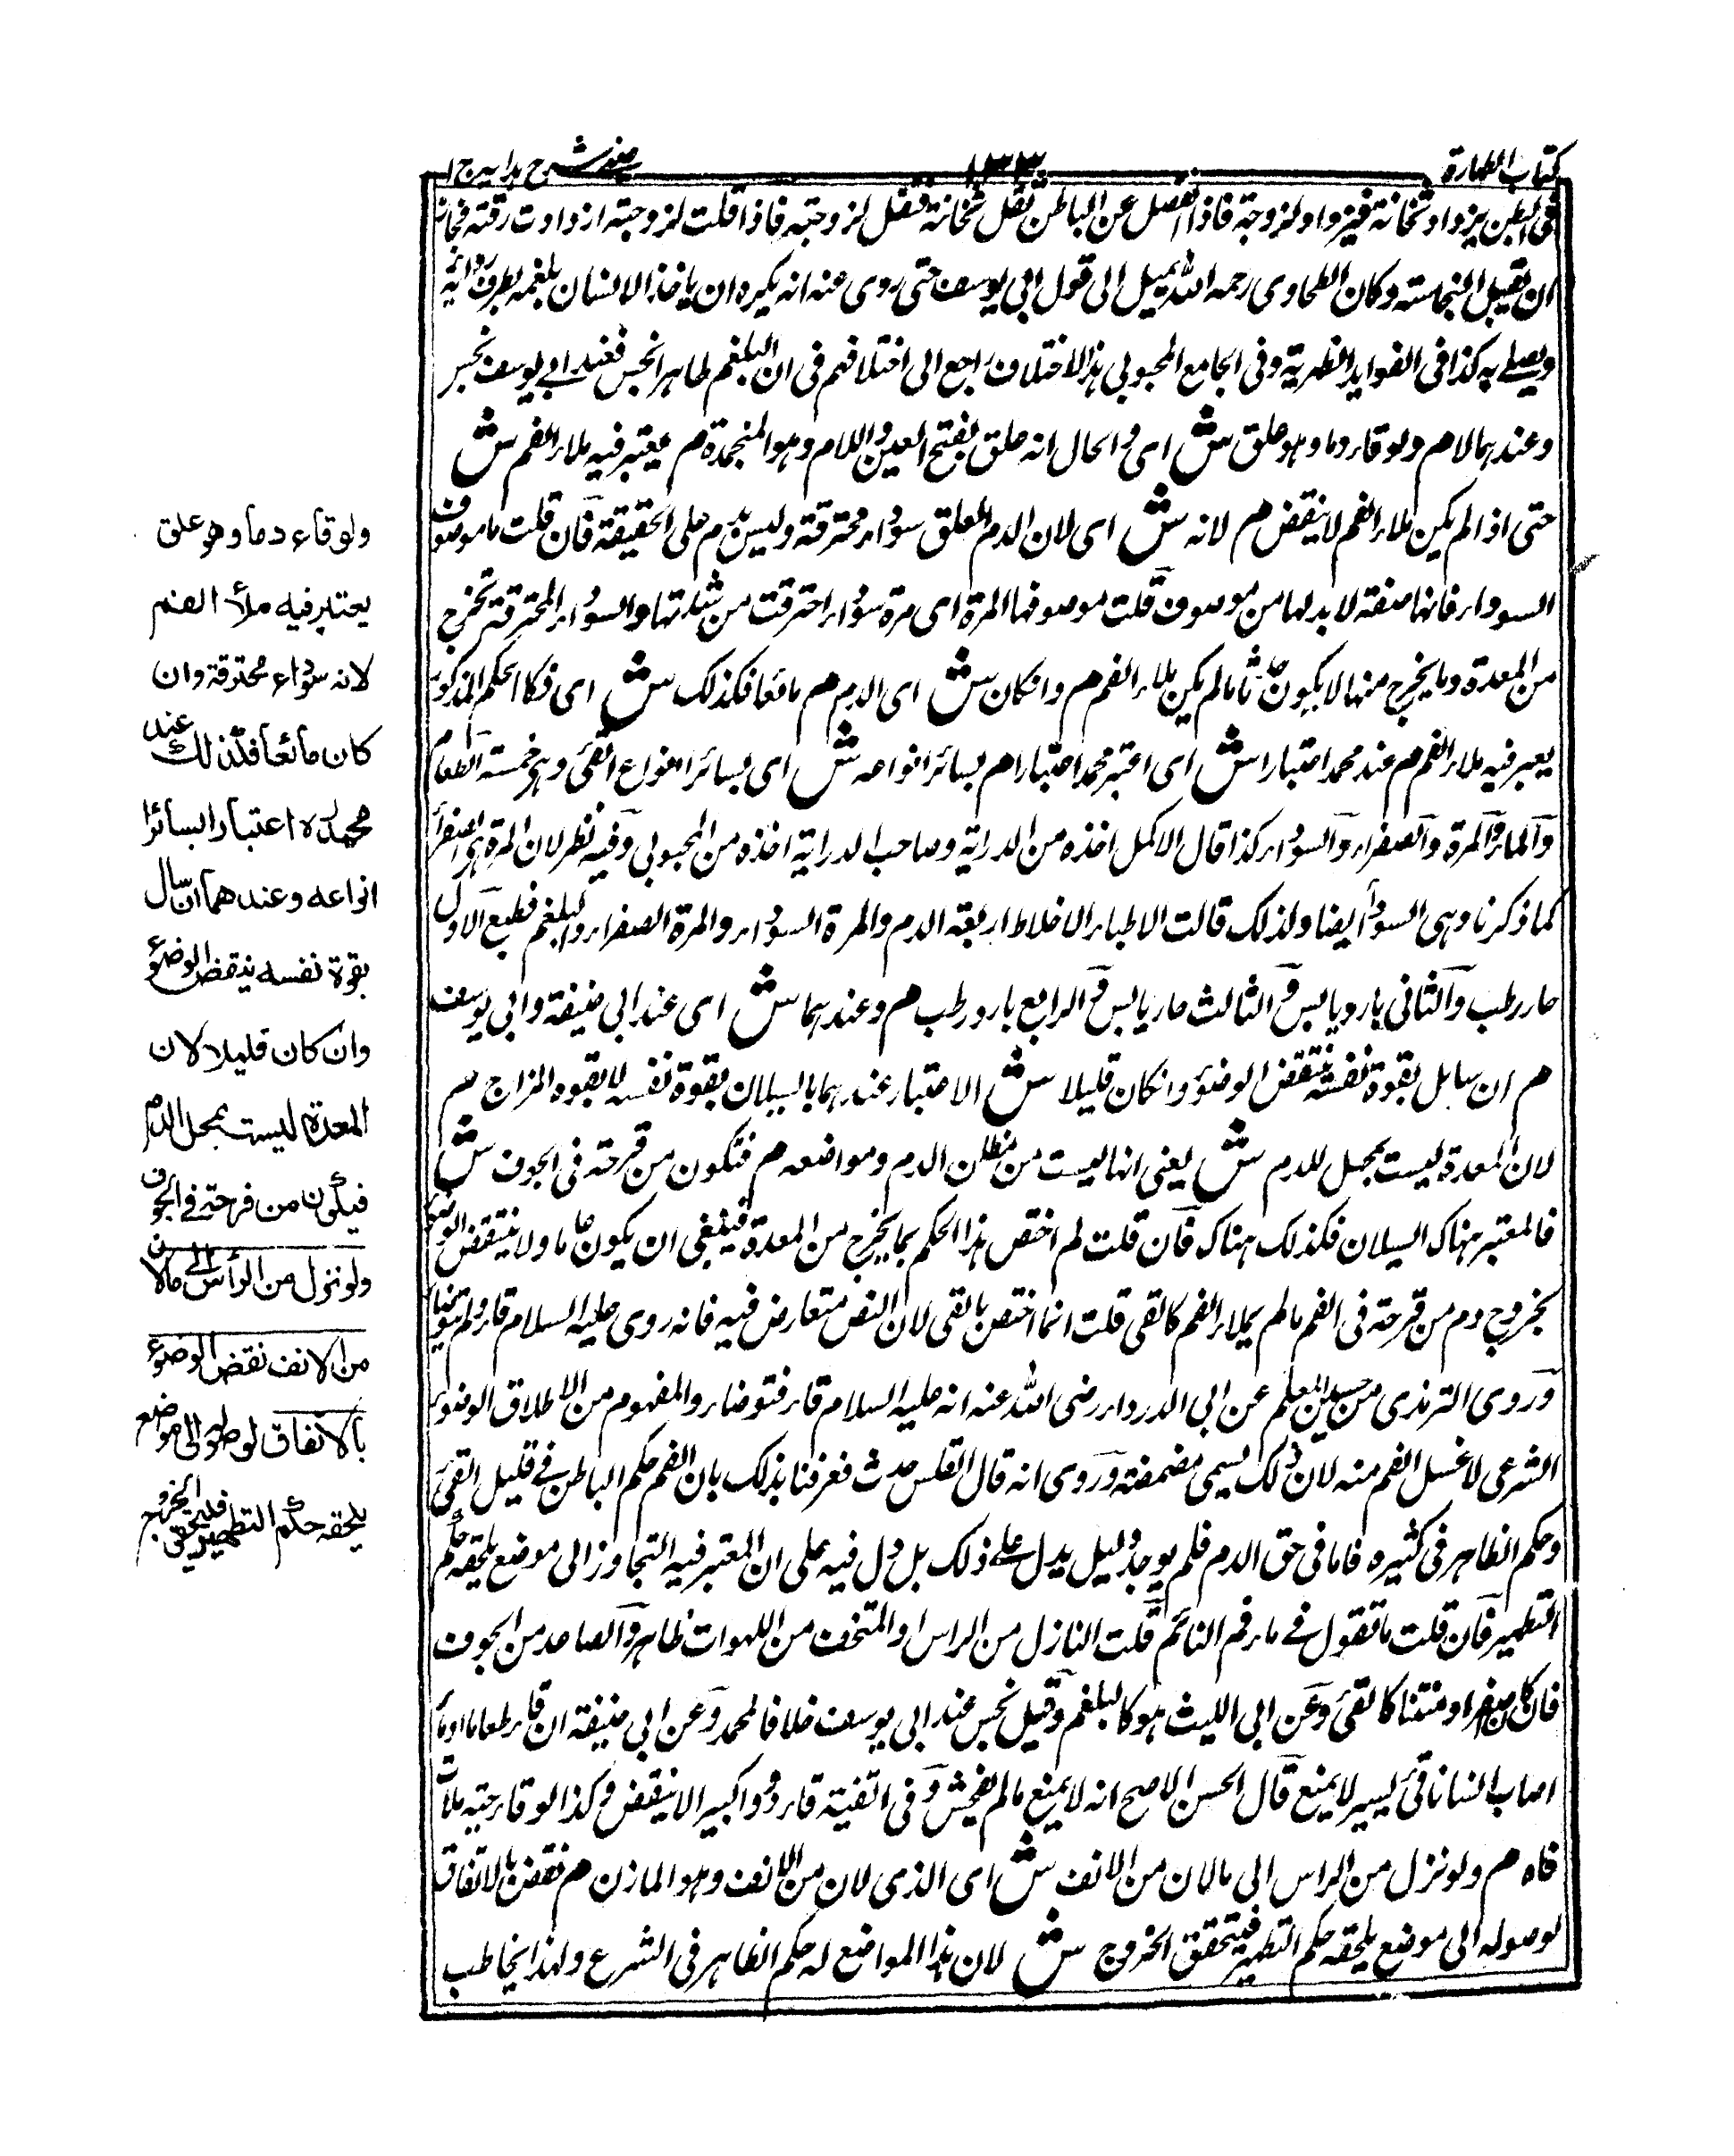 كتاب الطهارة
١٣٣
عينى شرح هدايه ج ١
فى البطن يزداد ثخانة فيزداد لزوجة فاذا انفصل عن الباطن تقل ثخانة فتقل لزوجته فاذا قلت لزوجته ازدادت رقته فجاز
ان يقبل النجاسة وكان الطحاوى رحمه الله يميل الى قول ابى يوسف حتى روى عنه انه يكره ان ياخذ الانسان بلغمه بطرف ردائه
ويصلے به كذا فى الفوايد الظهيرية وفى الجامع المحبوبى هذا الاختلاف راجع الى اختلافهم فى ان البلغم طاهر او نجس فعند ابى يوسف نجس
وعندهما لا م ولو قاء دما وهو علق ش اى والحال انه علق بفتح العين واللام وهو المنجمدة م يعتبر فيه ملاء الفم ش
حتى اذا لم يكن ملاء الفم لا ينقض م لانه ش اى لان الدم العلق سوداء محترقة وليس بدم على الحقيقة فان قلت ما موصوف
السوداء فانها صفة لا بد لها من موصوف قلت موصوفها المرة اى مرة سوداء احترقت من شدتها والسوداء المحترقة تخرج
من المعدة وما يخرج منها لا يكون حدثا ما لم يكن ملاء الفم م وان كان ش اى الدم م مائعا فكذلك ش اى فكا الحكم المذكور
يعبر فيه ملاء الفم م عند محمد اعتبارا ش اى اعتبر محمد اعتبارا م بسائر انواعه ش اى بسائر انواع القئ وهى خمسة الطعام
والماء والمرة والصفراء والسوداء كذا قال الاكمل اخذه من الدراية وصاحب الدراية اخذه من المحبوبى وفيه نظر لان المرة هى الصفرأ
كما ذكرنا وهى السودأ ايضا ولذلك قالت الاطباء الاخلاط اربعة الدم والمرة السوداء والمرة الصفراء والبلغم فطبع الاول
حار رطب والثانى بارد يابس والثالث حار يابس والرابع بارد رطب م وعندهما ش اى عند ابى حنيفة وابى يوسف
م ان سال بقوة نفسه ينتقض الوضوء وان كان قليلا ش الاعتبار عندهما بالسيلان بقوة نفسه لا بقوه المزاج م
لان المعدة ليست بمحل للدم ش يعنى انها ليست من مظان الدم ومواضعه م فتكون من قرحة فى الجوف ش
فالمعتبر هناك السيلان فكذلك هناك فان قلت لم اختص هذا الحكم بما يخرج من المعدة فينبغى ان يكون عاما ولا ينتقض الوضوء
بخروج دم من قرحة فى الفم ما لم يملاء الفم كالقى قلت انما اختص بالقى لان النص متعارض فيه فانه روى عليه السلام قاء ولم يتوضأ
وروى الترمذى من حسين المعلم عن ابى الدرداء رضى الله عنه انه عليه السلام قاء فتوضاء والمفهوم من الاطلاق الوضوء
الشرعى لا غسل الفم منه لان ذلك يسمى مضمضة وروى انه قال القلس حدث فعرفنا بذلك بان الفم حكم الباطن فے قليل القئ
وحكم الظاهر فى كثيره فاما فى حق الدم فلم يوجد دليل يدل علے ذلك بل دل فيه على ان المعتبر فيه التجاوز الى موضع يلحقه حكم
التطهير فان قلت ما تقول فے ماء فم النائم قلت النازل من الراس او المتخف من اللهوات طاهر والصاعد من الجوف
فان كان صفراء او منتنا كالقئ وعن ابى الليث هو كالبلغم وقيل نجس عند ابى يوسف خلافا لمحمد وعن ابى حنيفة ان قاء طعاما او مأ
اصاب انسانا قئ يسير لا يمنع قال الحسن الاصح انه لا يمنع ما لم يفحش وفى القنية قاء دودا كبيرا لا ينقض وكذا لو قاء حية ملأت
فاه م ولو نزل من الراس الى مالان من الانف ش اى الذى لان من الانف وهو المازن م نقض بالاتفاق
لوصوله الى موضع يلحقه حكم التطهير فيتحقق الخروج ش لان هذا المواضع له حكم الظاهر فى الشرع ولهذا يخاطب
ولو قاء دما وهو علق
يعتبر فيه ملأ الفم
لانه سوداء محترقة وان
كان مائعا فكذلك عند
محمد ره اعتبارا بسائر
انواعه وعندهما ان سال
بقوة نفسه ينقض الوضوء
وان كان قليلا لان
المعدة ليست بمحل الدم
فيكون من قرحة فى الجوف
ولو نزل من الرأس الى مالان
من الانف نقض الوضوء
بالاتفاق لوصوله الى موضع
يلحقه حكم التطهير فليتحقق الخروج